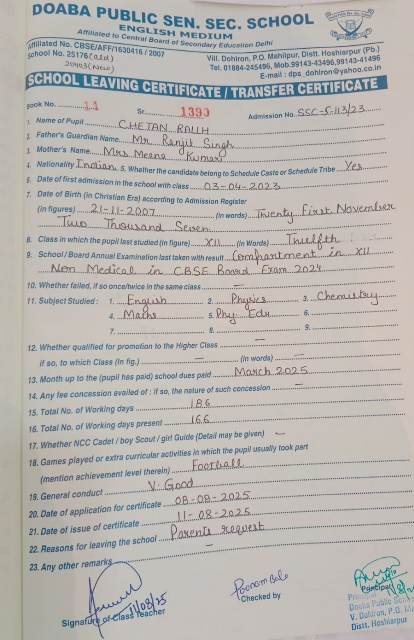 DOABA PUBLIC SEN. SEC. SCHOOL
ENGLISH MEDIUM
Affiliated to Central Board of Secondary Education Delhi
Affiliated No. CBSE/AFF/1630416 / 2007
School No. 25176 (old)
20903 (New)
Vill. Dohiron, P.O. Mahilpur, Distt. Hoshiarpur (Pb.)
Tel. 01884-245496, Mob.99143-43496,99143-41496
E-mail : dps_dohiron@yahoo.co.in
SCHOOL LEAVING CERTIFICATE / TRANSFER CERTIFICATE
Book No. 14 Sr. 1390 Admission No. SSC-S-113/23
1. Name of Pupil CHETAN RALLH
2. Father's Guardian Name Mr. Ranjit Singh
3. Mother's Name Mrs Meena Kumari
4. Nationality Indian 5. Whether the candidate belong to Schedule Caste or Schedule Tribe Yes
6. Date of first admission in the school with class 03-04-2023
7. Date of Birth (in Christian Era) according to Admission Register
(in figures) 21-11-2007 (in words) Twenty First November
Two Thousand Seven
8. Class in which the pupil last studied (in figure) XII (in Words) Twelfth
9. School / Board Annual Examination last taken with result Compartment in XII
Non Medical in CBSE Board Exam 2024
10. Whether failed, if so once/twice in the same class –
11. Subject Studied : 1. English 2. Physics 3. Chemistry
4. Maths 5. Phy. Edu 6.
7. 8. 9.
12. Whether qualified for promotion to the Higher Class –
if so, to which Class (in fig.) – (in words) –
13. Month up to the (pupil has paid) school dues paid March 2025
14. Any fee concession availed of : if so, the nature of such concession –
15. Total No. of Working days 186
16. Total No. of Working days present 166
17. Whether NCC Cadet / boy Scout / girl Guide (Detail may be given) –
18. Games played or extra curricular activities in which the pupil usually took part
(mention achievement level therein) Football
19. General conduct V. Good
20. Date of application for certificate 08-08-2025
21. Date of issue of certificate 11-08-2025
22. Reasons for leaving the school Parents request
23. Any other remarks –
11/08/25
Signature of Class Teacher
Poonam Bala
Checked by
Principal
Doaba Public
V. Dohiron, P.O.
Distt. Hoshiarpur